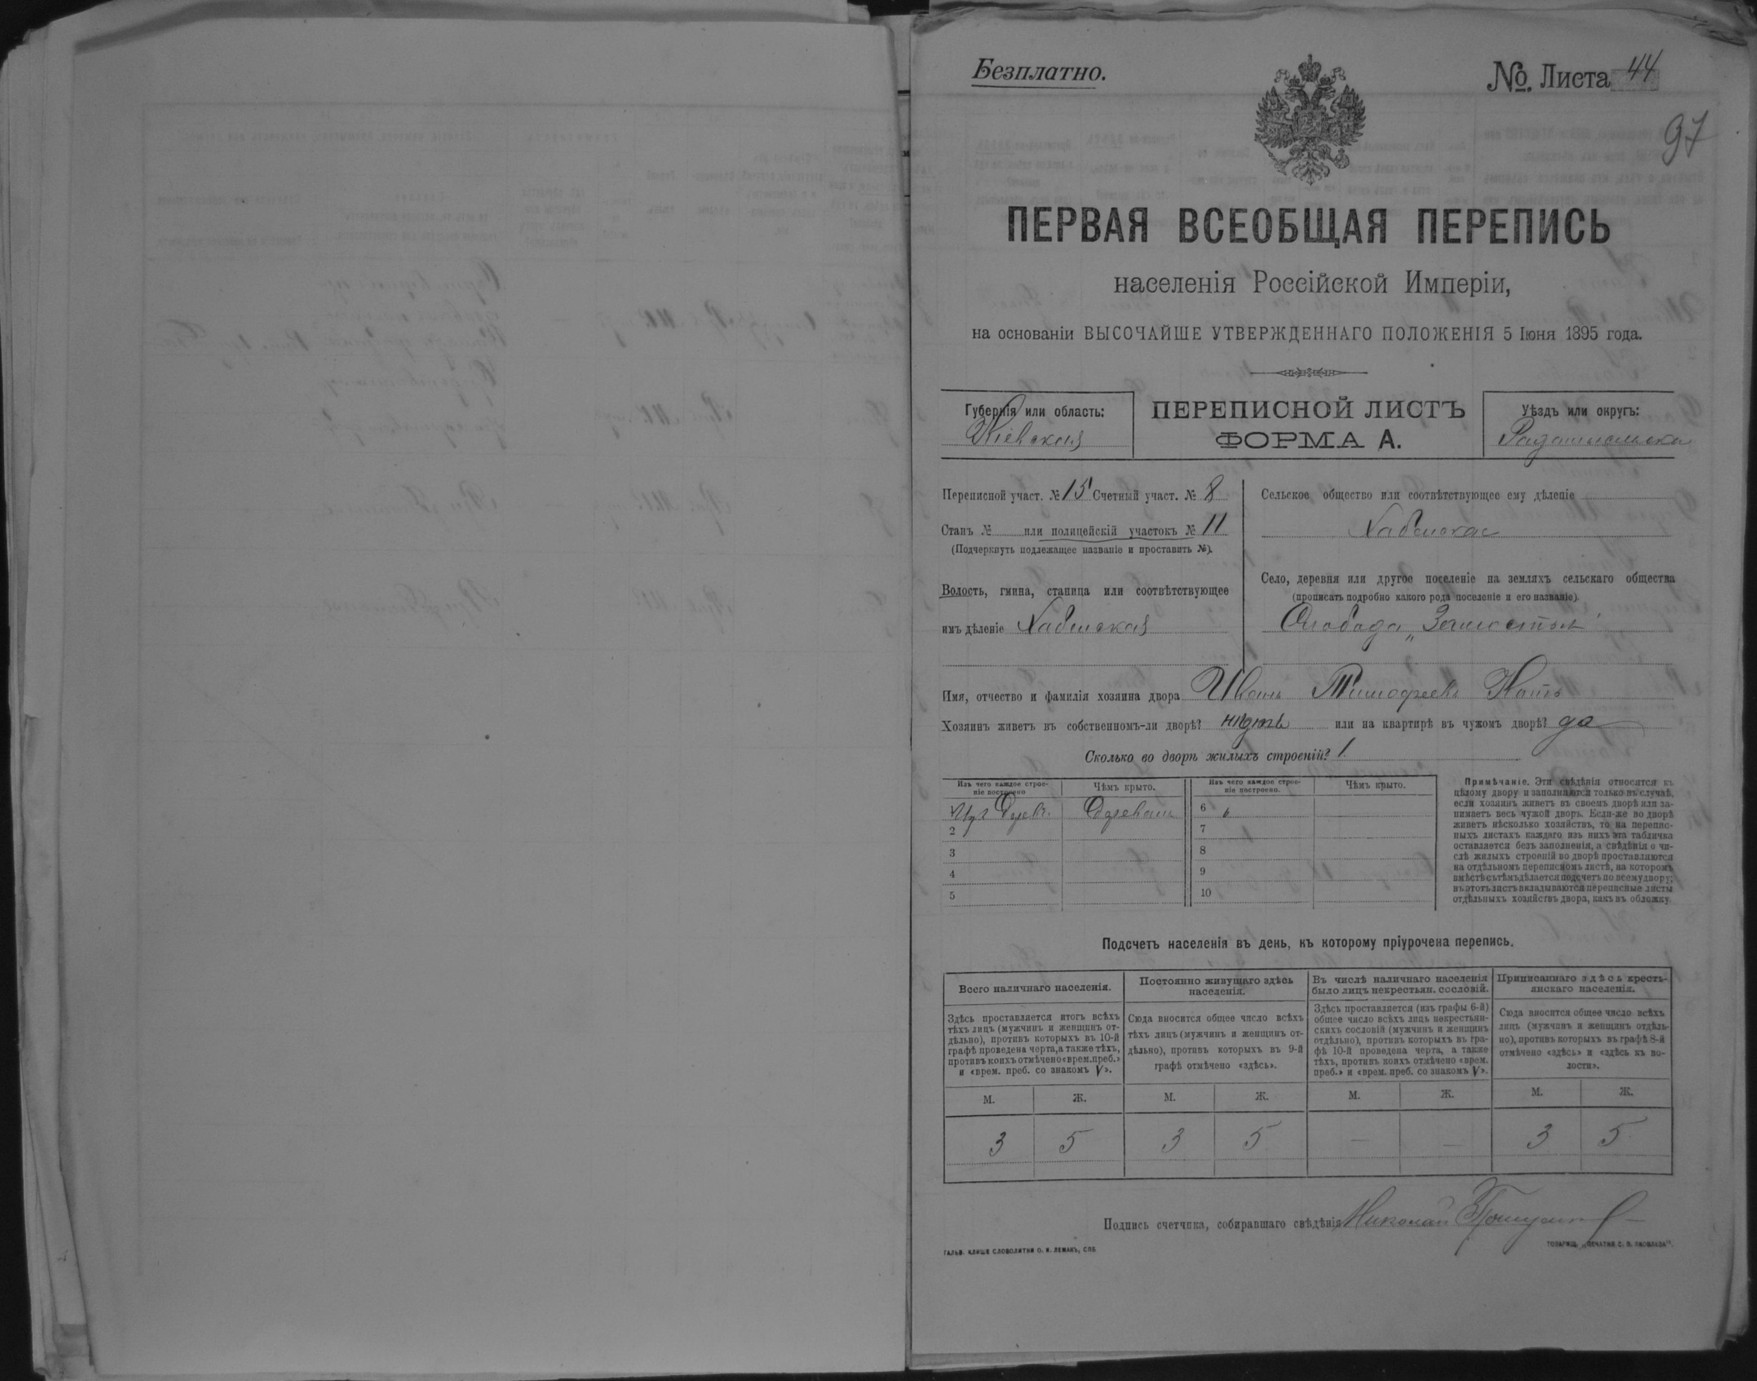 Безплатно.
№ Листа 44
97
ПЕРВАЯ ВСЕОБЩАЯ ПЕРЕПИСЬ
населенія Россійской Имперіи,
на основаніи ВЫСОЧАЙШЕ УТВЕРЖДЕННАГО ПОЛОЖЕНІЯ 5 Іюня 1895 года.
Губернія или область:
Кіевская
ПЕРЕПИСНОЙ ЛИСТЪ
ФОРМА А.
Уѣздъ или округъ:
Переписной участ. № 15 Счетный участ. № 8
Станъ № или полицейскій участокъ № 11
(Подчеркнуть подлежащее названіе и проставить №).
Волость, гмина, станица или соотвѣтствующее
имъ дѣленіе Хабенская
Сельское общество или соотвѣтствующее ему дѣленіе
Хабенское
Село, деревня или другое поселеніе на земляхъ сельскаго общества
(прописать подробно какого рода поселеніе и его названіе).
Слобода
Имя, отчество и фамилія хозяина двора Иванъ Тимофеевъ
Хозяинъ живетъ въ собственномъ-ли дворѣ? нѣтъ или на квартирѣ въ чужомъ дворѣ? да
Сколько во дворѣ жилыхъ строеній? 1.
Изъ чего каждое строе-
ніе построено
Чѣмъ крыто.
Изъ чего каждое строе-
ніе построено.
Чѣмъ крыто.
Изъ Дерев.
6
2
7
3
8
4
9
5
10
Примѣчаніе. Эти свѣдѣнія относятся къ
цѣлому двору и заполняются только въ случаѣ,
если хозяинъ живетъ въ своемъ дворѣ или за-
нимаетъ весь чужой дворъ. Если-же во дворѣ
живетъ нѣсколько хозяйствъ, то на перепис-
ныхъ листахъ каждаго изъ нихъ эта табличка
оставляется безъ заполненія, а свѣдѣнія о чи-
слѣ жилыхъ строеній во дворѣ проставляются
на отдѣльномъ переписномъ листѣ, на которомъ
вмѣстѣ съ тѣмъ дѣлается подсчетъ по всему двору;
въ этотъ листъ вкладываются переписные листы
отдѣльныхъ хозяйствъ двора, какъ въ обложку.
Подсчетъ населенія въ день, къ которому пріурочена перепись.
Всего наличнаго населенія.
Здѣсь проставляется итогъ всѣхъ
тѣхъ лицъ (мужчинъ и женщинъ от-
дѣльно), противъ которыхъ въ 10-й
графѣ проведена черта, а также тѣхъ,
противъ коихъ отмѣчено «врем. преб.»
и «врем. преб. со знакомъ V».
Постоянно живущаго здѣсь
населенія.
Сюда вносится общее число всѣхъ
тѣхъ лицъ (мужчинъ и женщинъ от-
дѣльно), противъ которыхъ въ 9-й
графѣ отмѣчено «здѣсь».
Въ числѣ наличнаго населенія
было лицъ некрестьян. сословій.
Здѣсь проставляется (изъ графы 6-й)
общее число всѣхъ лицъ некрестьян-
скихъ сословій (мужчинъ и женщинъ
отдѣльно), противъ которыхъ въ гра-
фѣ 10-й проведена черта, а также
тѣхъ, противъ коихъ отмѣчено «врем.
преб.» и «врем. преб. со знакомъ V».
Приписаннаго здѣсь кресть-
янскаго населенія.
Сюда вносится общее число всѣхъ
лицъ (мужчинъ и женщинъ отдѣль-
но), противъ которыхъ въ графѣ 8-й
отмѣчено «здѣсь» и «здѣсь въ во-
лости».
М. Ж. М. Ж. М. Ж. М. Ж.
3 5 3 5 — — 3 5
Подпись счетчика, собиравшаго свѣдѣнія Николай
ГАЛЬВ. КЛИШЕ СЛОВОЛИТНИ О. И. ЛЕМАНЪ, СПБ.